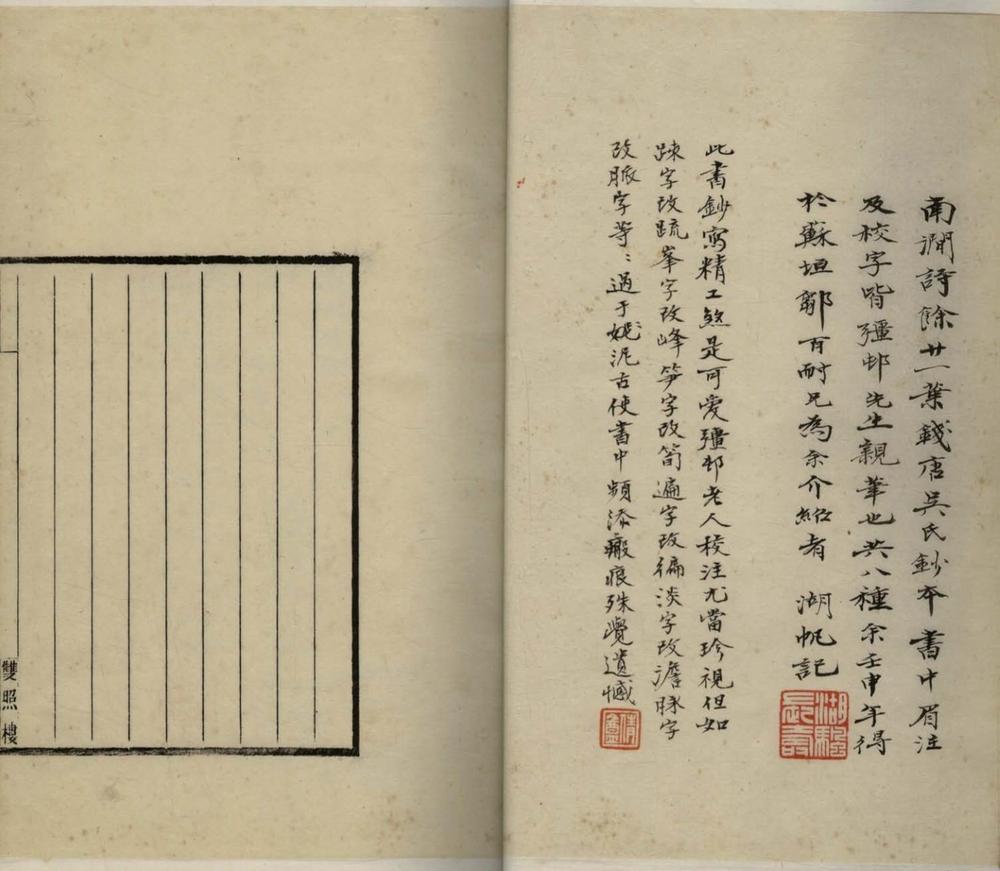 南澗詩餘廿一葉錢唐吳氏鈔本書中眉注
及校字皆彊邨先生親筆也共八種余壬申年得
於蘇垣鄒百耐兄為余介紹者 湖帆記
此書鈔寫精工煞是可愛彊邨老人校注尤當珍視但如
踈字改疏峯字改峰笋字改筍遍字改徧淡字改澹脉字
改脈字等〻過于媿泥古使書中頻添瘢痕殊覺遺憾
雙照樓